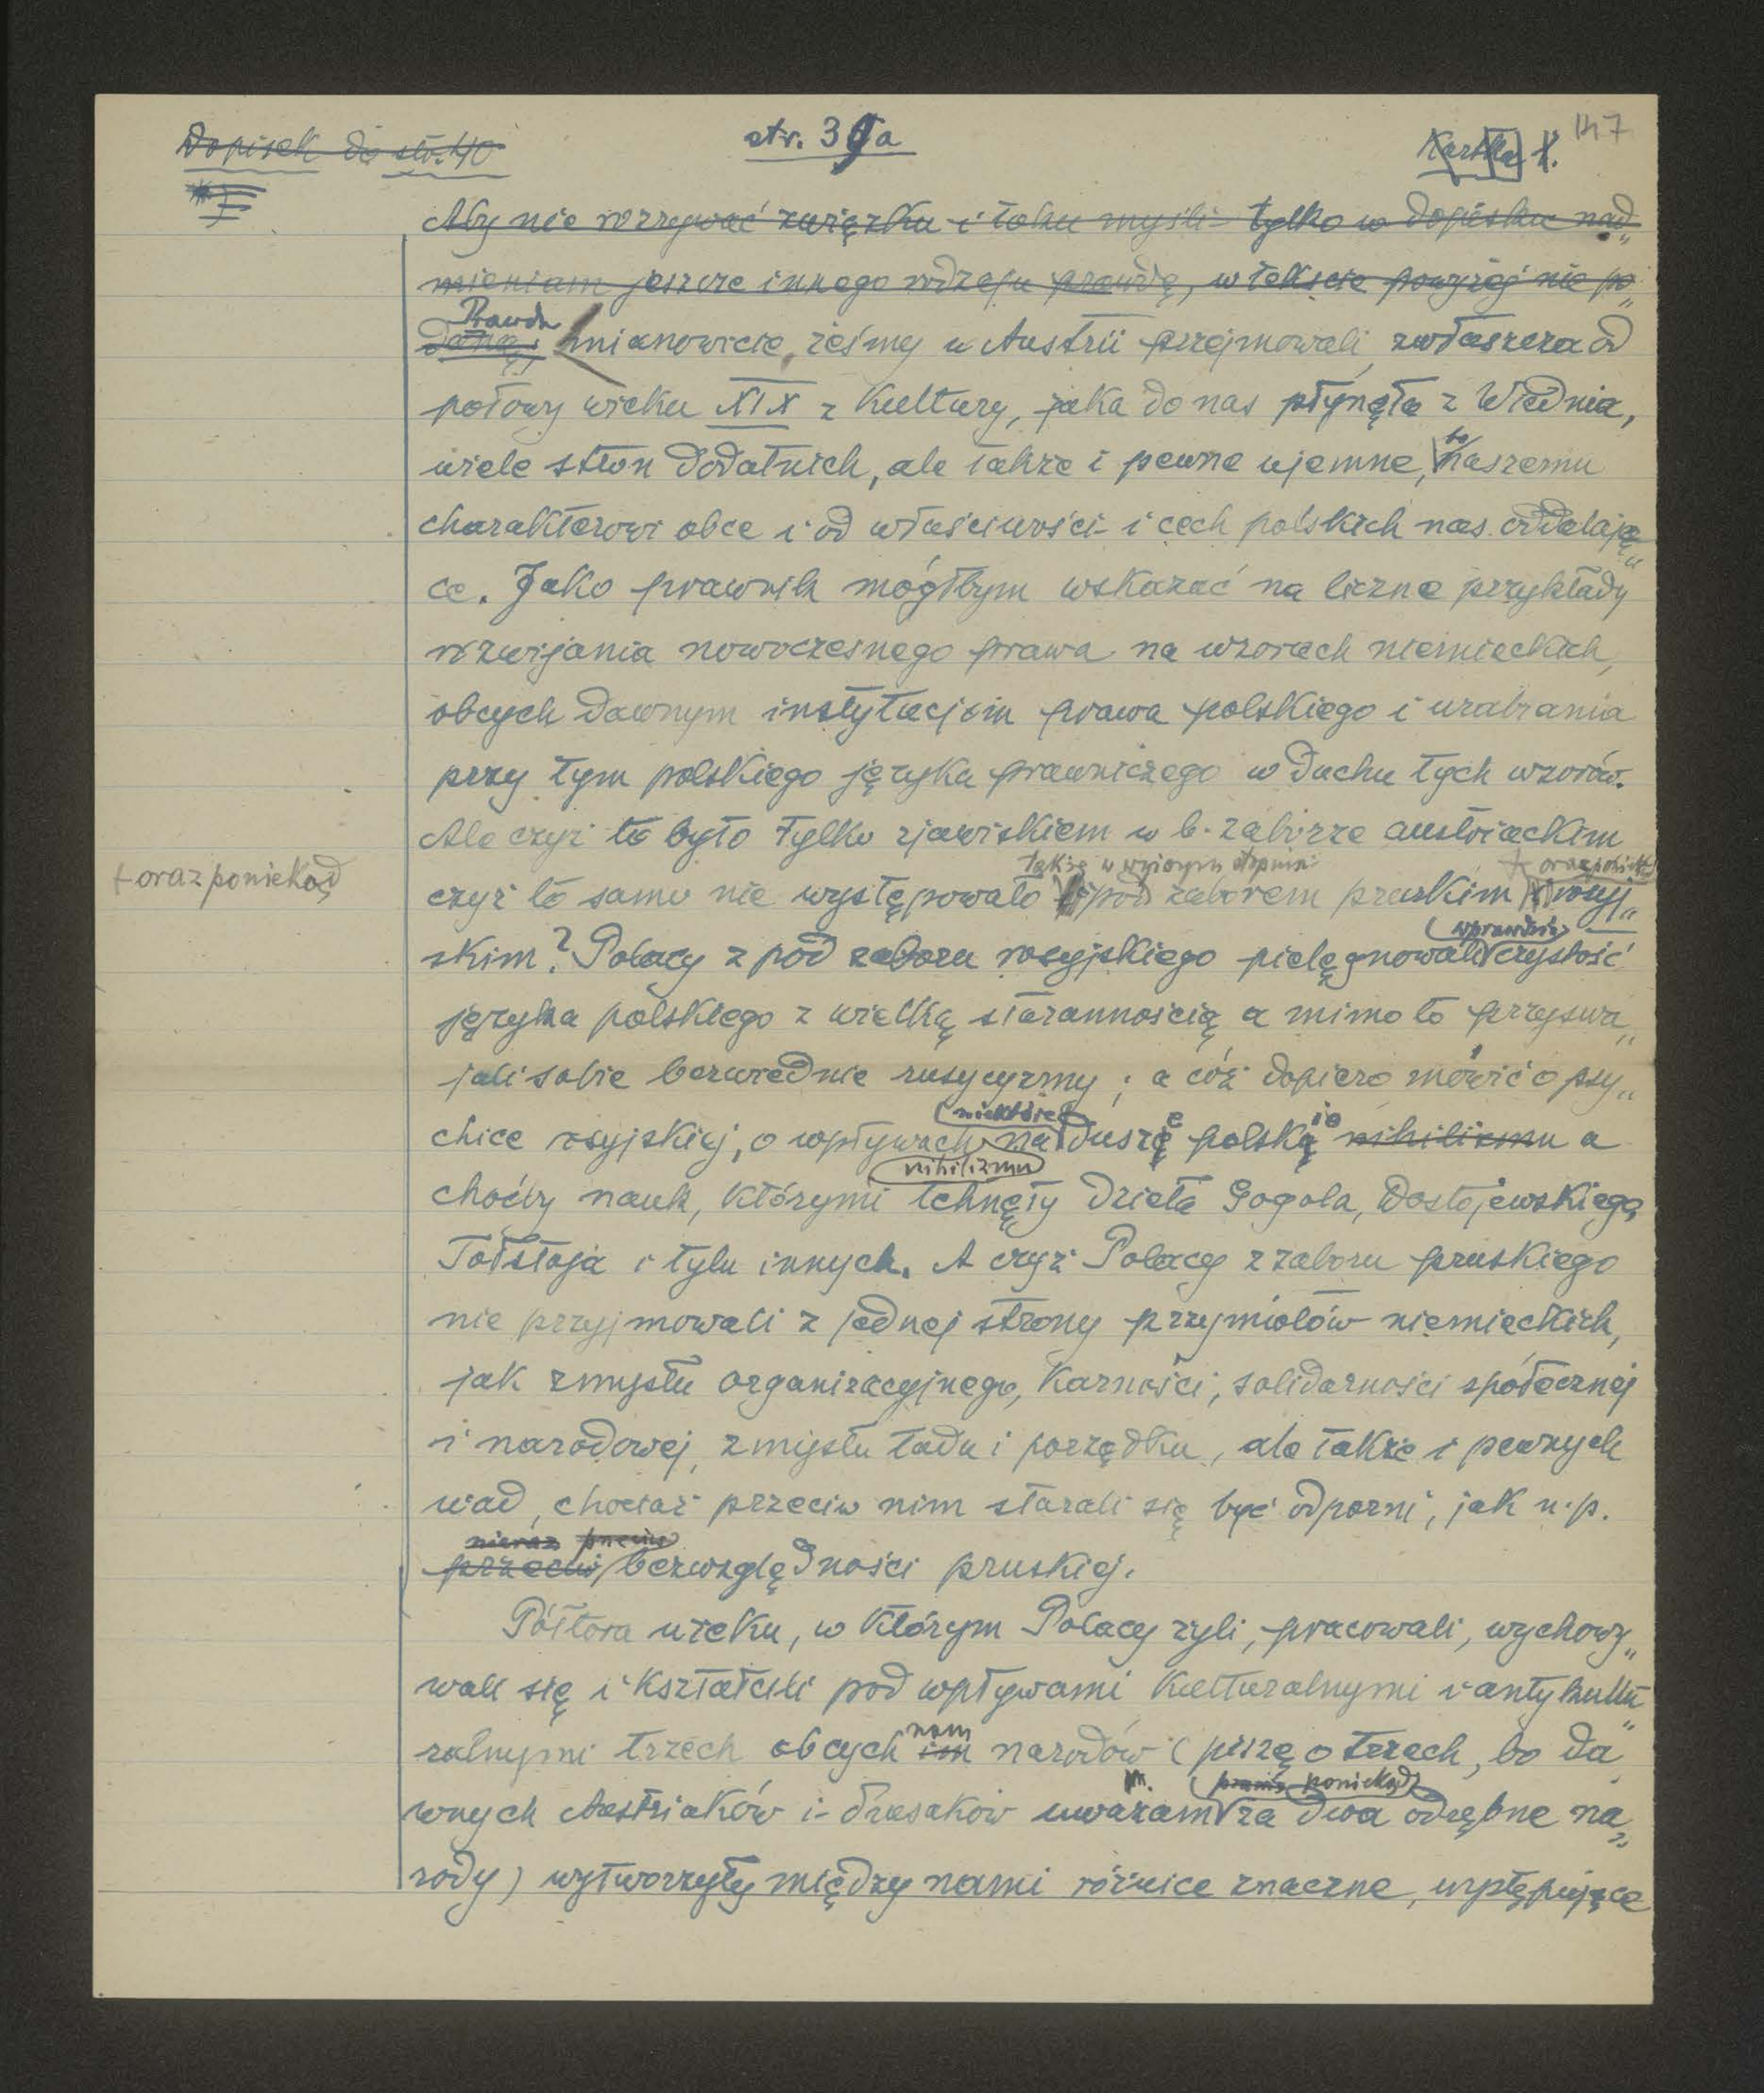 Dopisek do str. 40
str. 39a
Kartka 1.
147
Aby nie rozrywać związku i toku myśli tylko w dopisku nad„
mieniam jeszcze innego rodzaju prawdę, w tekscie powyżej nie po„
Prawda
daną, mianowicie, żeśmy w Austrii przejmowali, zwłaszcza od
połowy wieku XIX z kultury, jaka do nas płynęła z Wiednia,
bo
wiele stron dodatnich, ale także i pewne ujemne, naszemu
charakterowi obce i od właściwości i cech polskich nas oddalają„
ce. Jako prawnik mógłbym wskazać na liczne przykłady
rozwijania nowoczesnego prawa na wzorach niemieckich,
obcych dawnym instytucjom prawa polskiego i urabiania
przy tym polskiego języka prawniczego w duchu tych wzorów.
Ale czyż to było tylko zjawiskiem w b. zaborze austriackim
także w wyższym stopniu + oraz poniekąd
+ oraz poniekąd
czyż to samo nie występowało pod zaborem pruskim i rosyj„
wprawdzie
skim? Polacy z pod zaboru rosyjskiego pielęgnowali czystość
języka polskiego z wielką starannością a mimo to przyswa„
jali sobie bezwiednie rusycyzmy; a cóż dopiero mówić o psy„
niektóre e ie
chice rosyjskiej, o wpływach na duszę polską nihilizmu a
nihilizmu
choćby nauk, którymi tchnęły dzieła Gogola, Dostojewskiego,
Tołstoja i tylu innych. A czyż Polacy z zaboru pruskiego
nie przyjmowali z jednej strony przymiotów niemieckich,
jak zmysłu organizacyjnego, karności, solidarności społecznej
i narodowej, zmysłu ładu i porządku, ale także i pewnych
wad, chociaż przeciw nim starali się być odporni, jak n.p.
nieraz przeciw
przeciw bezwzględności pruskiej.
Półtora wieku, w którym Polacy żyli, pracowali, wychowy„
wali się i kształcili pod wpływami kulturalnymi i antykultu„
nam
ralnymi trzech obcych im narodów (piszę o trzech, bo da„
m. poniekąd
wnych Austriaków i Prusaków uważam za dwa odrębne na„
rody) wytworzyły między nami różnice znaczne, występujące